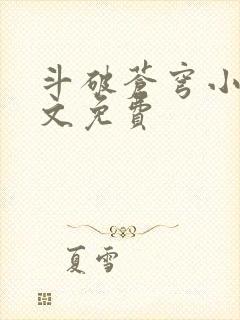 斗破苍穹小
文免費
夏雪